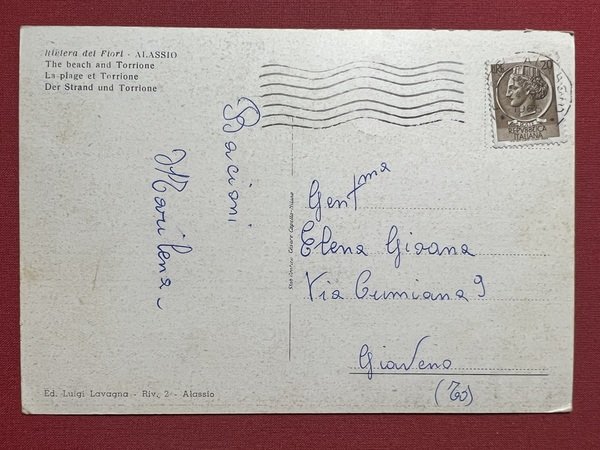 Riviera dei Fiori - ALASSIO
The beach and Torrione
La plage et Torrione
Der Strand und Torrione
Bacioni
Marilena
LIRE 20
REPVBBLICA
ITALIANA
Gent^ma
Elena Gioana
Via Cumiana 9
Giaveno
(To)
Ed. Luigi Lavagna - Riv. 2 - Alassio